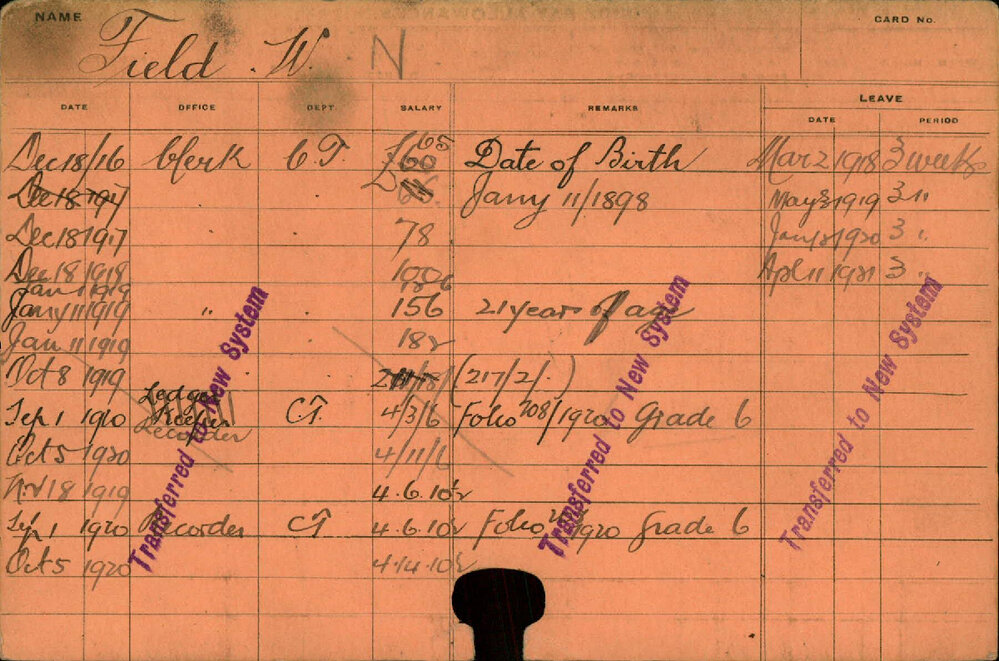 NAME
CARD No.
Field W. N
DATE OFFICE DEPT. SALARY REMARKS LEAVE
DATE PERIOD
Dec 18/16 Clerk C.T. £60 65 Date of Birth Mar 2 1918 3 weeks
Dec 18 1917 £ Jany 11/1898 May 3 1919 3 "
Dec 18 1917 78 Jany 1920 3 "
Dec 18 1918 100 Apl 11 1921 3 "
Jan 1 1919
Jany 11 1919 " 156 21 years of age
Jan 11 1919 182
Oct 8 1919 (217/2/.)
Sep 1 1920 Ledger Keeper Recorder CT 4/3/6 Folio 208/1920 Grade 6
Oct 5 1920 4/11/6
Nov 18 1919 4.6.10½
Sep 1 1920 Recorder CT 4.6.10½ Folio /1920 Grade 6
Oct 5 1920 4.14.10½
Transferred to New System
Transferred to New System
Transferred to New System